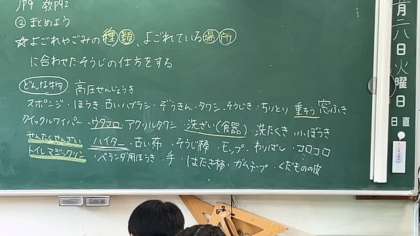 P9 教P92
② まとめよう
☆よごれやごみの種類、よごれている場所
に合わせたそうじの仕方をする
どんな物 高圧せんじょうき
スポンジ・ほうき・古いハブラシ・ぞうきん・タワシ・そうじき・ちりとり 重そう 窓ふき
クイックルワイパー・ウタマロ アクリルタワシ 洗ざい(食器) 洗たくき 小ぼうき
せんたくせんざい ハイター・古い布・そうじ棒・モップ・カリぼし・コロコロ
トイレマジックリン・ベランダ用ほうき・手・はたき棒・ガムテープ・くだものの皮
月八日火曜日
日直